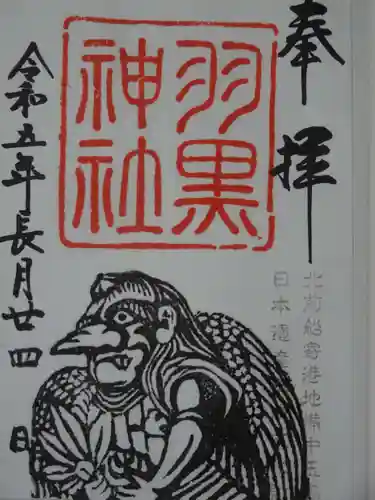 奉拝
羽黒
神社
北前船寄港地備中玉
日本遺産
令和五年長月廿四日